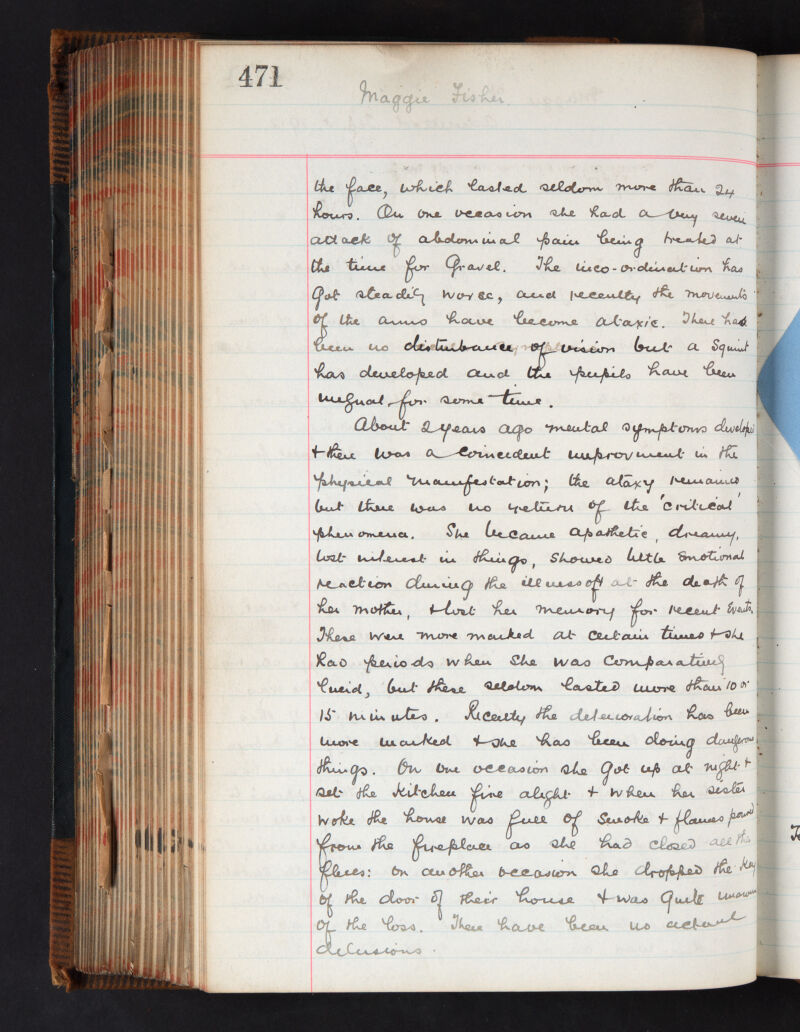 471
Maggie Fisher.
the face, which lasted seldom more than 24
hours. On one occasion she had a very severe
attack of abdominal pain being treated at
the time for Gravel. The inco-ordination has
got steadily worse, and recently the movements
of the arms have become ataxic. There has
been no disturbance of vision but a Squint
has developed and the pupils have been
unequal for some time.
About 2 years ago mental symptoms developed
& there was a coincident improvement in the
physical manifestation; the ataxy remained
but there was no return of the 'critical'
phenomena. She became apathetic, dreamy,
lost interest in things, showed little emotional
reaction during the illness of & at the death of
her mother, & lost her memory for recent Events.
These were more marked at certain times & she
had periods when she was comparatively
lucid, but these seldom lasted more than 10 or
15 minutes. Recently the deterioration has been
more marked & she has been doing dangerous
things. On one occasion she got up at night &
set the kitchen fire alight & when her sister
woke the house was full of smoke & flames poured
from the fireplace as she had closed all the
flues: on another occasion she dropped the key
of the door of their house & was quite unaware
of the loss. There have been no actual
delusions.